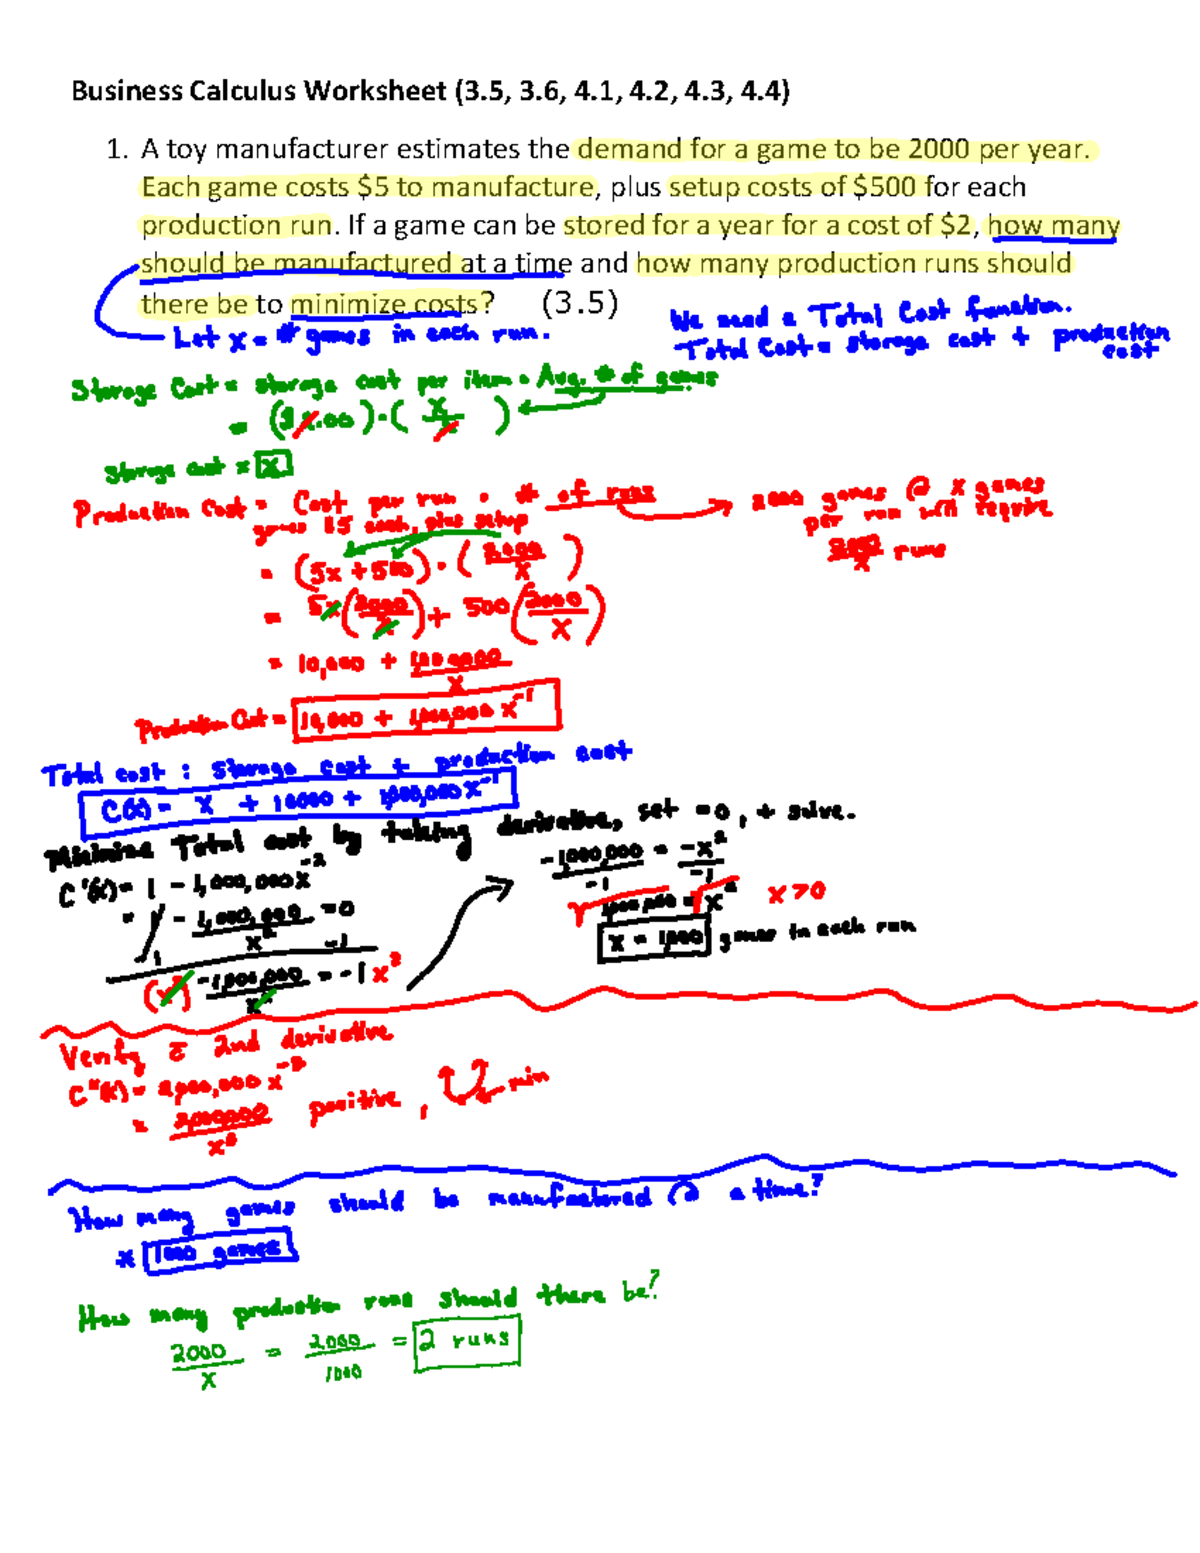 Business Calculus Worksheet (3.5, 3.6, 4.1, 4.2, 4.3, 4.4)
1. A toy manufacturer estimates the demand for a game to be 2000 per year.
Each game costs $5 to manufacture, plus setup costs of $500 for each
production run. If a game can be stored for a year for a cost of $2, how many
should be manufactured at a time and how many production runs should
there be to minimize costs? (3.5)
We need a Total Cost function.
Let x = # games in each run.
Total Cost = storage cost + production cost
Storage Cost = storage cost per item • Avg. # of games
= ($2.00) • (x/2)
Storage cost = x
Production Cost = Cost per run • # of runs
games $5 each, plus setup
2000 games @ x games
per run will require
2000/x runs
= (5x + 500) • (2000/x)
= 5x(2000/x) + 500(2000/x)
= 10,000 + 1,000,000/x
Production Cost = 10,000 + 1,000,000x⁻¹
Total cost: Storage cost + production cost
C(x) = x + 10000 + 1,000,000x⁻¹
Minimize Total cost by taking derivative, set = 0, + solve.
C'(x) = 1 - 1,000,000x⁻²
= 1 - 1,000,000/x² = 0
-1 -1
(x²) -1,000,000/x² = -1x²
-1,000,000/-1 = -x²/-1
√1,000,000 = √x² x>0
x = 1,000 games in each run
Verify c̄ 2nd derivative
C"(x) = 2,000,000x⁻³
= 2,000,000/x³ positive, min
How many games should be manufactured @ a time?
* 1000 games
How many production runs should there be?
2000/x = 2000/1000 = 2 runs